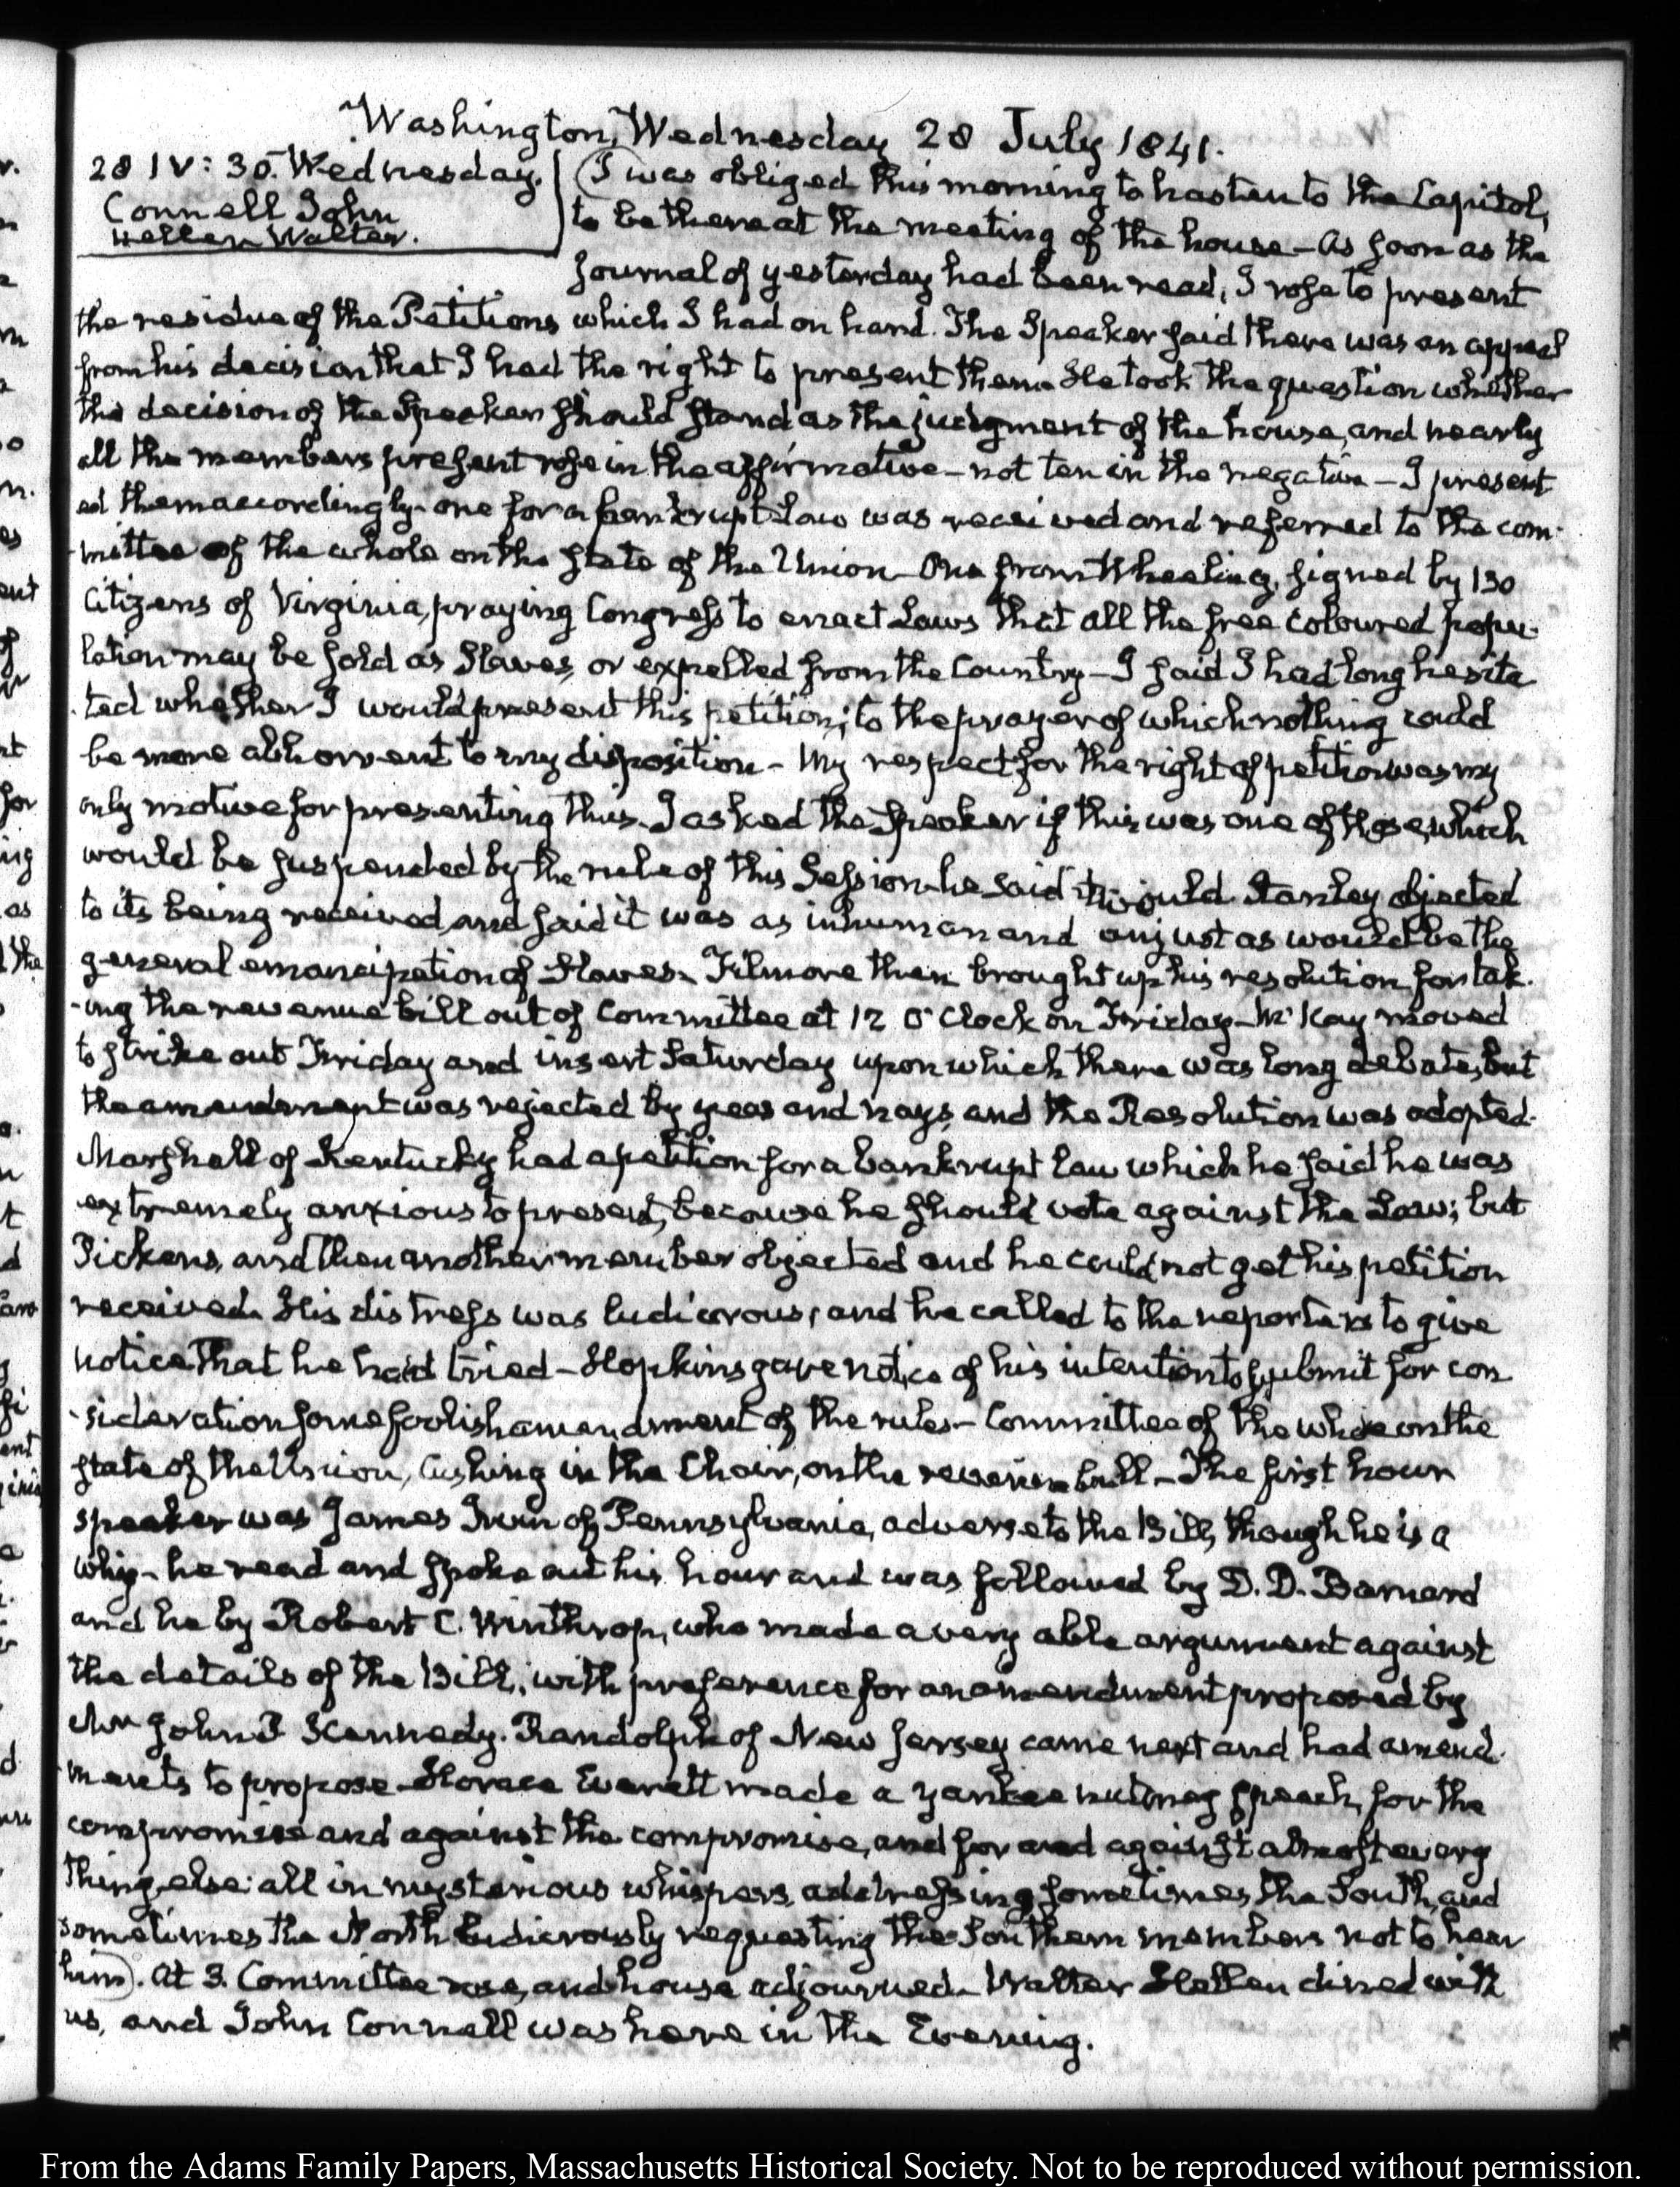 Washington, Wednesday 28 July 1841.
28 IV: 30. Wednesday.
Connell John
Hellen Walter.
I was obliged this morning to hasten to the Capitol,
to be there at the meeting of the house – As soon as the
journal of yesterday had been read, I rose to present
the residue of the Petitions which I had on hand. The Speaker said there was an appeal
from his decision that I had the right to present them. He took the question whether
the decision of the Speaker should stand as the judgment of the house, and nearly
all the members present rose in the affirmative – not ten in the negative – I present
ed them accordingly – one for a bankrupt Law was received and referred to the com-
mittee of the whole on the state of the Union – One from Wheeling, signed by 130
Citizens of Virginia, praying Congress to enact Laws that all the free coloured popu-
lation may be sold as Slaves, or expelled from the Country – I said I had long hesita
-ted whether I would present this petition; to the prayer of which nothing could
be more abhorrent to my disposition – My respect for the right of petition was my
only motive for presenting this. I asked the Speaker if this was one of those, which
would be suspended by the rule of this Session – he said it would. Stanley objected
to its being received, and said it was as inhuman and unjust as would be the
general emancipation of Slaves. Filmore then brought up his resolution for tak-
-ing the revenue bill out of Committee at 12 O'Clock on Friday – McKay moved
to strike out Friday and insert Saturday upon which there was long debate, but
the amendment was rejected by yeas and nays, and the Resolution was adopted.
Marshall of Kentucky had a petition for a bankrupt law which he said he was
extremely anxious to present, because he should vote against the Law; but
Pickens, and then another member objected and he could not get his petition
received. His distress was ludicrous, and he called to the reporters to give
notice that he had tried – Hopkins gave notice of his intention to submit for con
-sideration some foolish amendment of the rules – Committee of the whole on the
state of the Union, Cushing in the Chair, on the revenue bill – The first hour
speaker was James Irvin of Pennsylvania, adverse to the Bill, though he is a
whig – he read and spoke out his hour and was followed by D. D. Barnard
and he by Robert C. Winthrop, who made a very able argument against
the details of the Bill, with preference for an amendment proposed by
Mr John P Kennedy. Randolph of New Jersey came next and had amend-
ments to propose – Horace Everett made a yankee nutmeg speech, for the
compromise and against the compromise, and for and against almost every
thing else: all in mysterious whispers, addressing sometimes the South, and
sometimes the North ludicrously requesting the Southern members not to hear
him). At 3. Committee rose, and house adjourned – Walter Hellen dined with
us, and John Connell was here in the Evening.
From the Adams Family Papers, Massachusetts Historical Society. Not to be reproduced without permission.